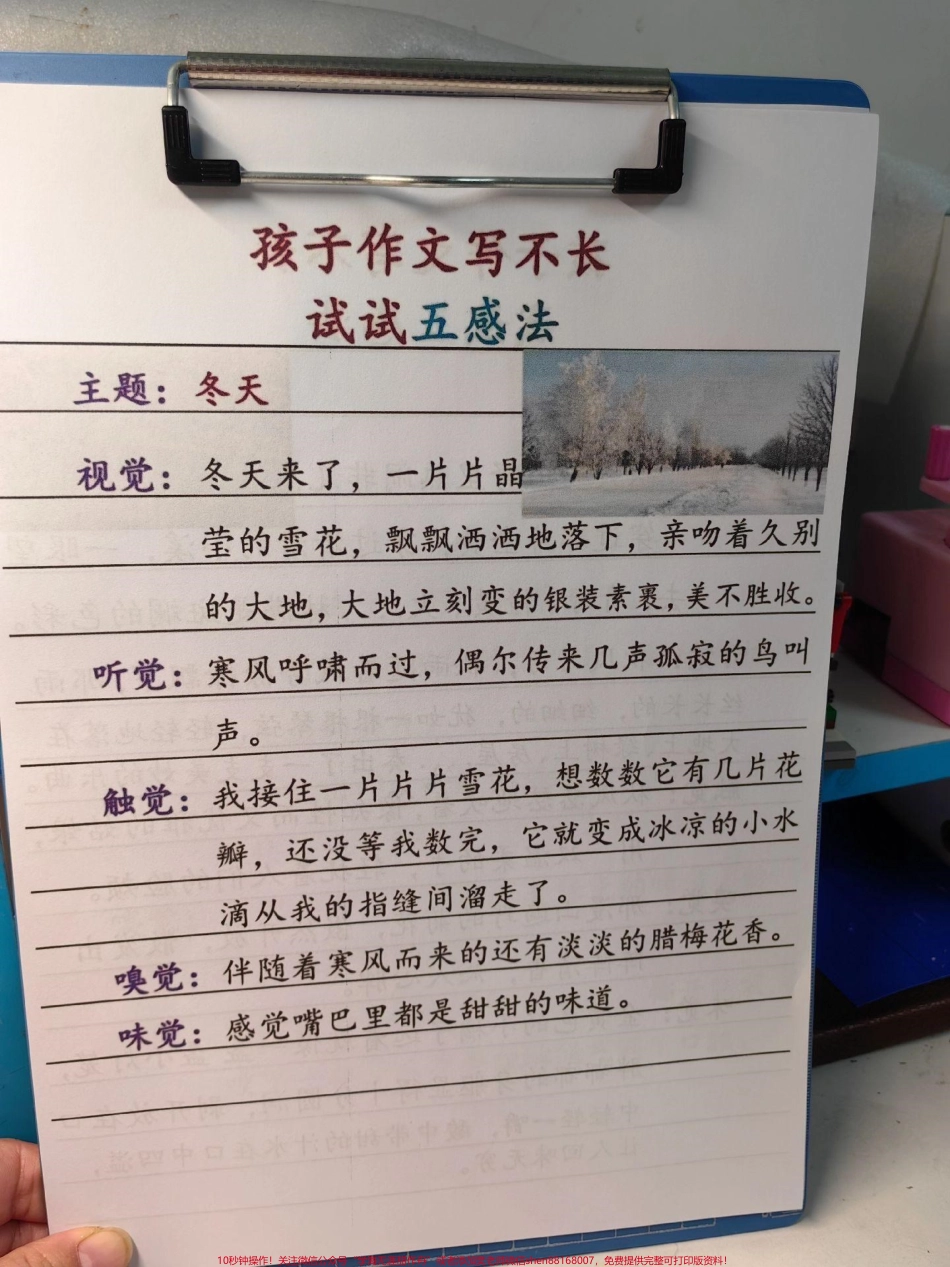 孩子作文写不长
试试五感法
主题：冬天
视觉：冬天来了，一片片晶
莹的雪花，飘飘洒洒地落下，亲吻着久别
的大地，大地立刻变的银装素裹，美不胜收。
听觉：寒风呼啸而过，偶尔传来几声孤寂的鸟叫
声。
触觉：我接住一片片片雪花，想数数它有几片花
瓣，还没等我数完，它就变成冰凉的小水
滴从我的指缝间溜走了。
嗅觉：伴随着寒风而来的还有淡淡的腊梅花香。
味觉：感觉嘴巴里都是甜甜的味道。
10秒钟操作！关注微信公众号
shen88168007，免费提供完整可打印版资料！